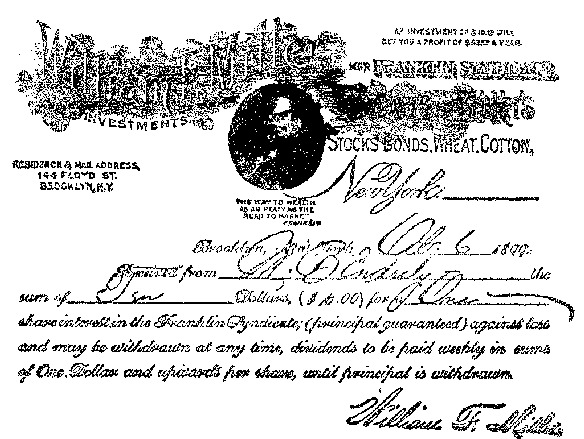 AN INVESTMENT OF $10.00 WILL
NET YOU A PROFIT OF $52.00 A YEAR.
William F. Miller
MGR FRANKLIN SYNDICATE
INVESTMENTS
STOCKS, BONDS, WHEAT, COTTON,
RESIDENCE & MAIL ADDRESS,
144 FLOYD ST.
BROOKLYN, N.Y.
New York
THE WAY TO WEALTH
IS AS PLAIN AS THE
ROAD TO MARKET
FRANKLIN
Brooklyn, New York, 6 1899
Received from the
sum of Ten Dollars, ($ 00) for One
share interest in the Franklin Syndicate, (principal guaranteed) against loss
and may be withdrawn at any time, dividends to be paid weekly in sums
of One Dollar and upwards per share, until principal is withdrawn.
William F. Miller